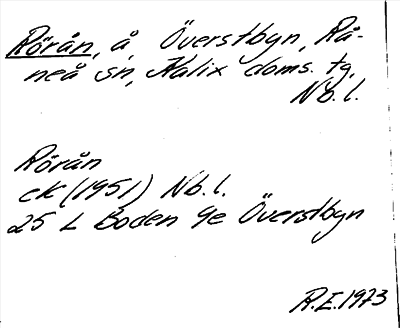 Rörån, å, Överstbyn, Rå-
neå sn, Kalix doms. tg,
Nb.l.
Rörån
ek (1951) Nb.l.
25 L Boden 9e Överstbyn
R.E.1973